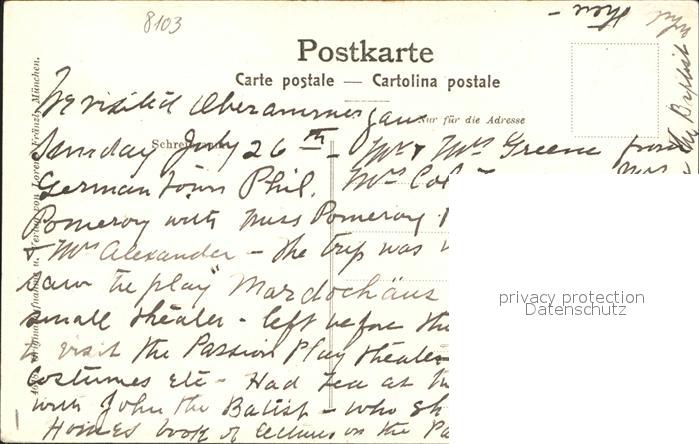 8103
Postkarte
Carte postale — Cartolina postale
Nur für die Adresse
We visited Oberammergau
Sunday July 26th - Mr & Mrs Greene from
Germantown Phil. Mrs
Pomeroy with Miss Pomeroy
& Mrs Alexander - The trip was
saw the play Mardochäus
small theater - left before the
to visit the Passion Play theater
Costumes etc - Had tea at
with John the Batist - who
Holmes book of lectures on the
privacy protection
Datenschutz